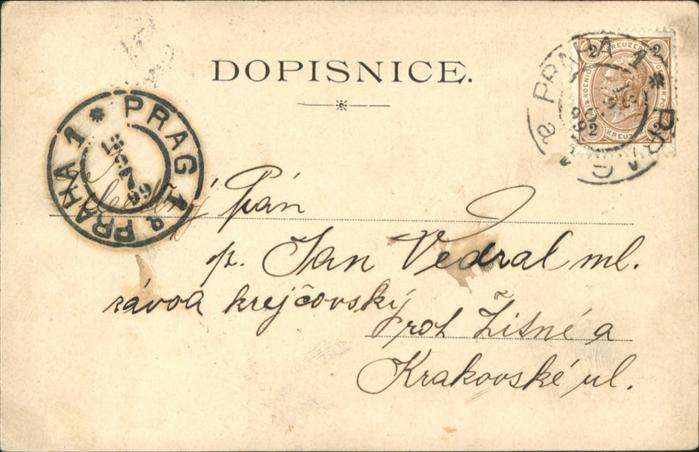 DOPISNICE.
2 KREUZER 2
PRAG 1 * PRAHA 1
PRAG 1 & PRAHA 1 *
99
pán
p. Jan Vedral ml.
závod krejčovský
roh Žitné a
Krakovské ul.